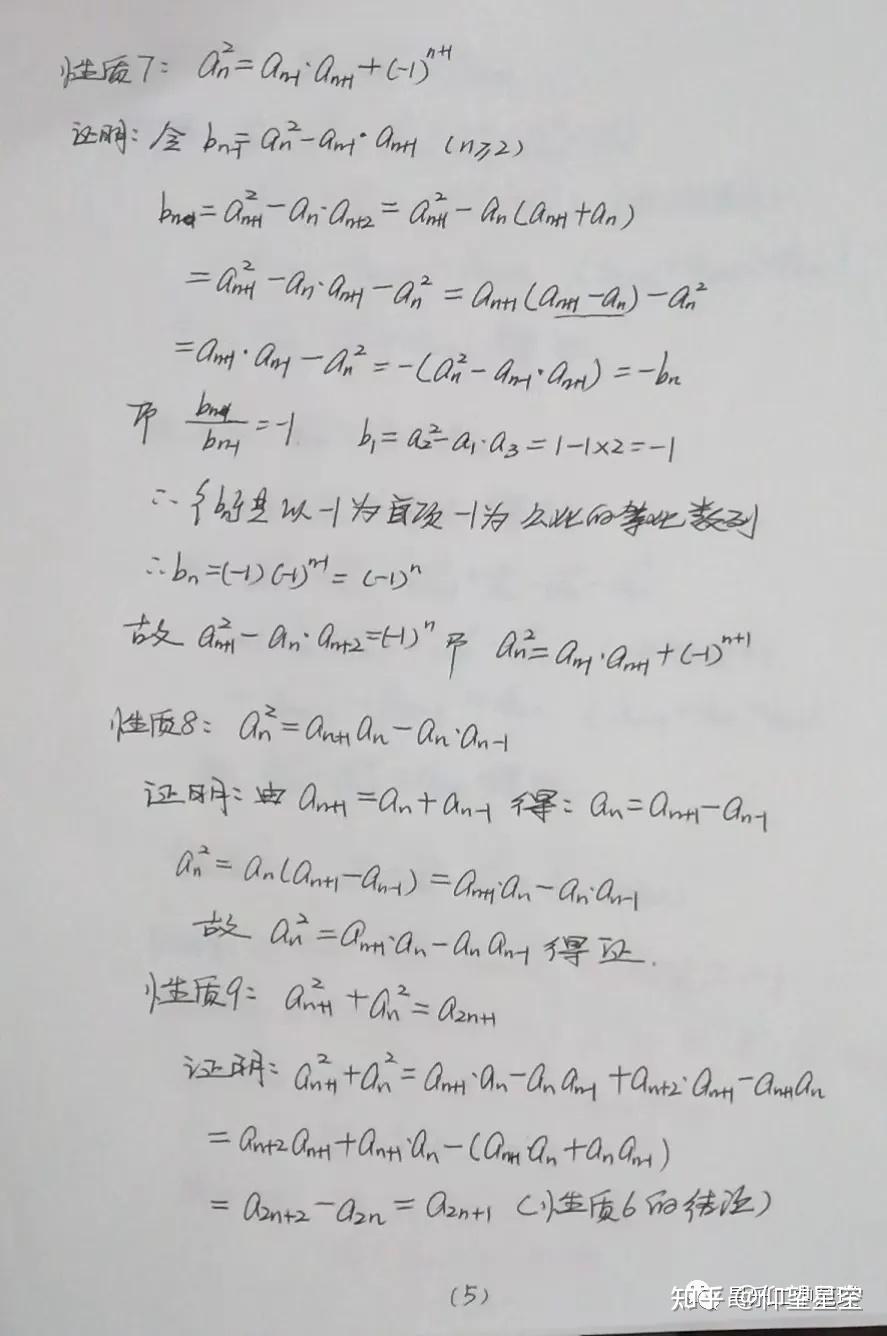 性质7: aₙ² = aₙ₋₁·aₙ₊₁ + (-1)ⁿ⁺¹
证明: 令 bₙ₋₁ = aₙ² - aₙ₋₁·aₙ₊₁ (n≥2)
bₙ = aₙ₊₁² - aₙ·aₙ₊₂ = aₙ₊₁² - aₙ(aₙ₊₁ + aₙ)
= aₙ₊₁² - aₙ·aₙ₊₁ - aₙ² = aₙ₊₁(aₙ₊₁ - aₙ) - aₙ²
= aₙ₊₁·aₙ₋₁ - aₙ² = -(aₙ² - aₙ₋₁·aₙ₊₁) = -bₙ
即 bₙ/bₙ₋₁ = -1 b₁ = a₂² - a₁·a₃ = 1-1×2 = -1
∴ {bₙ}是以-1为首项-1为公比的等比数列
∴ bₙ = (-1)(-1)ⁿ⁻¹ = (-1)ⁿ
故 aₙ₊₁² - aₙ·aₙ₊₂ = (-1)ⁿ 即 aₙ² = aₙ₋₁·aₙ₊₁ + (-1)ⁿ⁺¹
性质8: aₙ² = aₙ₊₁aₙ - aₙ·aₙ₋₁
证明: 由 aₙ₊₁ = aₙ + aₙ₋₁ 得: aₙ = aₙ₊₁ - aₙ₋₁
aₙ² = aₙ(aₙ₊₁ - aₙ₋₁) = aₙ₊₁·aₙ - aₙ·aₙ₋₁
故 aₙ² = aₙ₊₁·aₙ - aₙaₙ₋₁ 得证.
性质9: aₙ₊₁² + aₙ² = a₂ₙ₊₁
证明: aₙ₊₁² + aₙ² = aₙ₊₁·aₙ - aₙaₙ₋₁ + aₙ₊₂·aₙ₊₁ - aₙ₊₁aₙ
= aₙ₊₂aₙ₊₁ + aₙ₊₁·aₙ - (aₙ₊₁·aₙ + aₙaₙ₋₁)
= a₂ₙ₊₂ - a₂ₙ = a₂ₙ₊₁ (性质6的结论)
(5)
知乎 @仰望星空